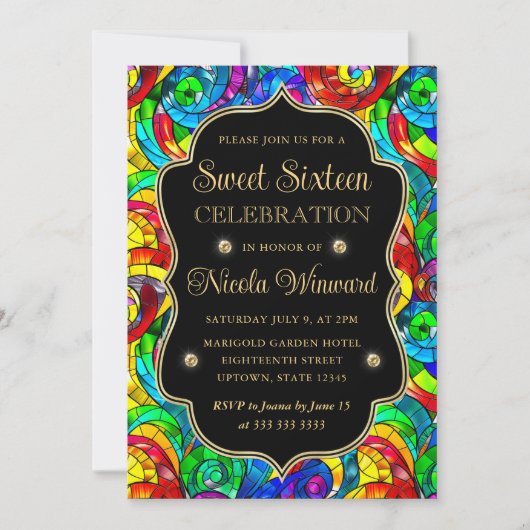 PLEASE JOIN US FOR A
Sweet Sixteen
CELEBRATION
IN HONOR OF
Nicola Winward
SATURDAY JULY 9, AT 2PM
MARIGOLD GARDEN HOTEL
EIGHTEENTH STREET
UPTOWN, STATE 12345
RSVP to Joana by June 15
at 333 333 3333